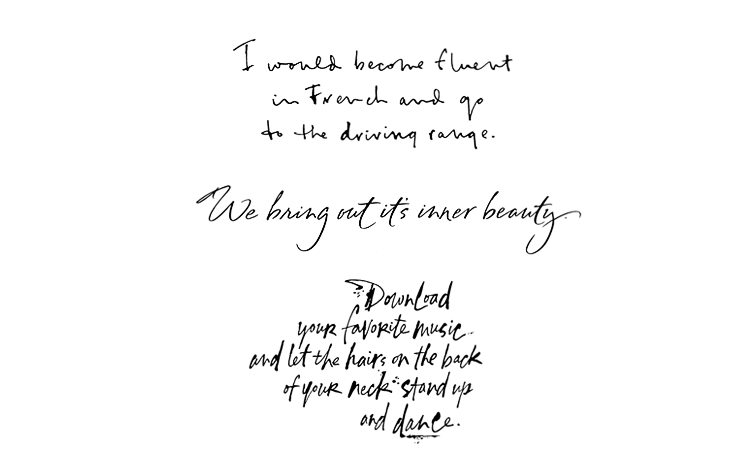 I would become fluent
in French and go
to the driving range.
We bring out it's inner beauty
Download
your favorite music
and let the hairs on the back
of your neck stand up
and dance.